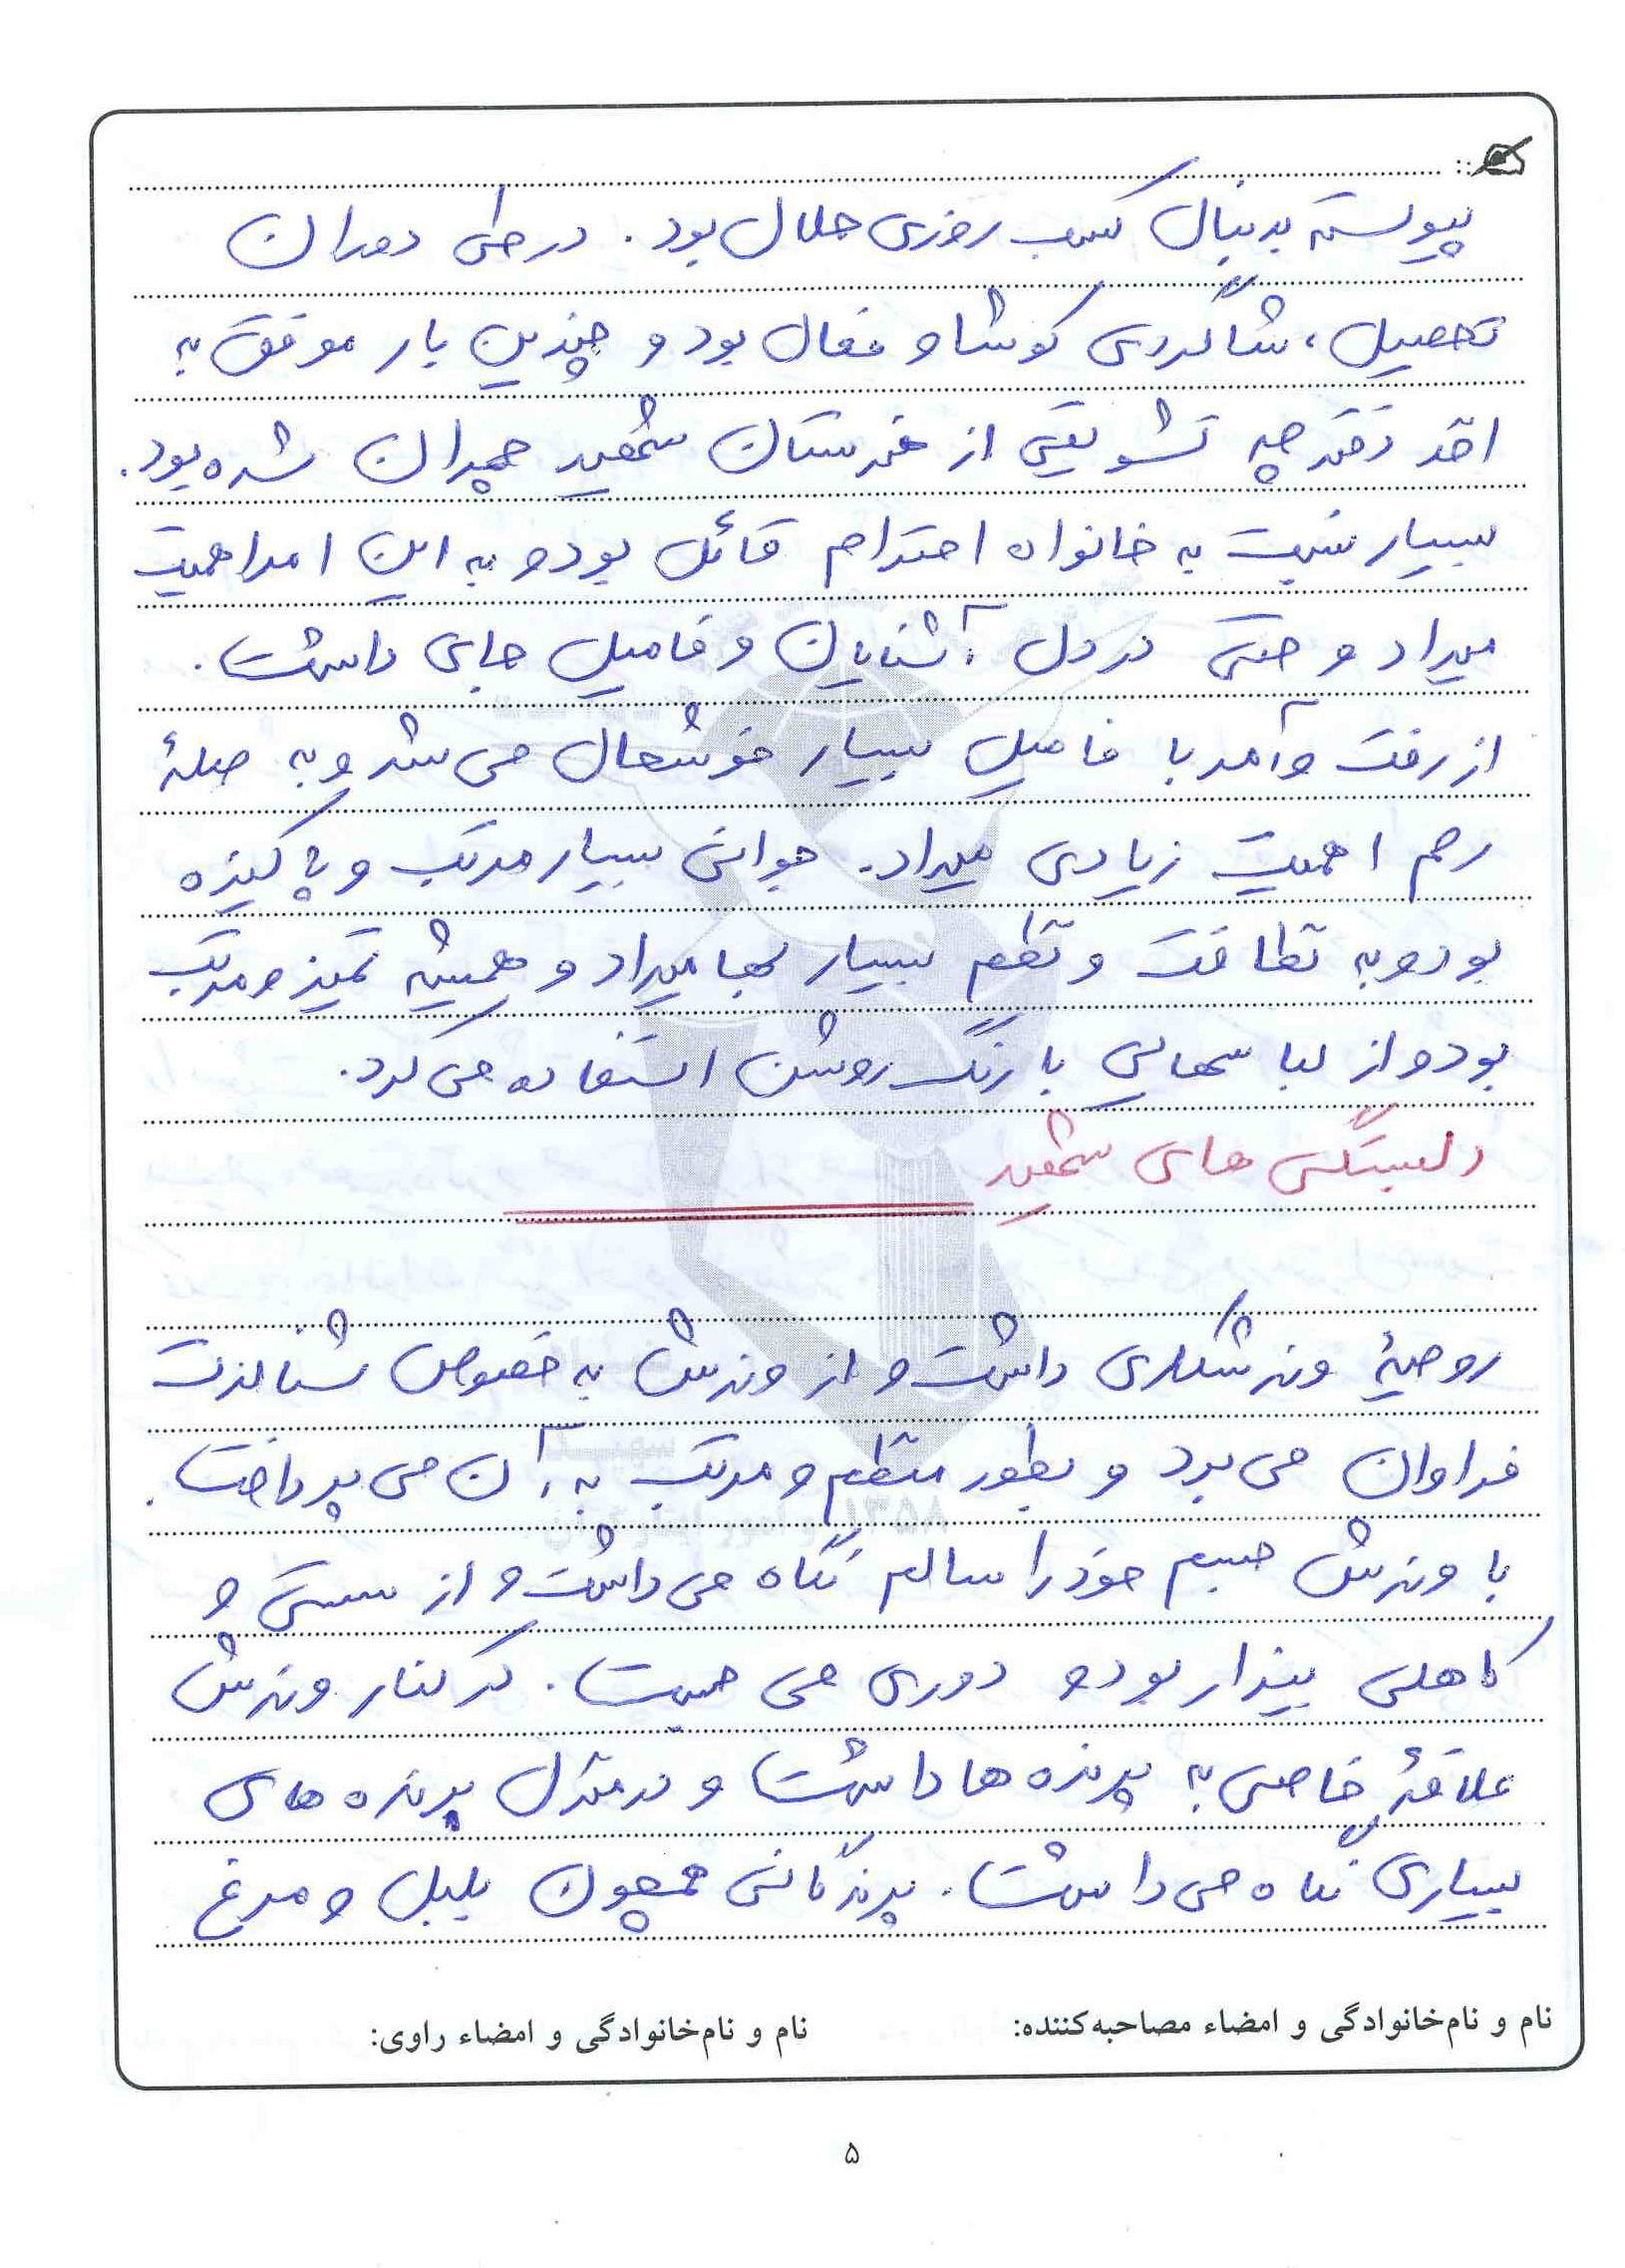 پیوسته بدنبال کسب روزی حلال بود. در طی دوران
تحصیل، شاگردی کوشا و فعال بود و چندین بار موفق به
اخذ دفترچه تشویقی از هنرستان شهید چمران شده بود.
بسیار نسبت به خانواده احترام قائل بود و به این امر اهمیت
میداد و حتی در دل آشنایان و فامیل جای داشت.
از رفت و آمد با فامیل بسیار خوشحال می شد و به صلهٔ
رحم اهمیت زیادی میداد. جوانی بسیار مرتب و پاکیزه
بود و به نظافت و نظم بسیار بها میداد و همیشه تمیز و مرتب
بود و از لباسهایی با رنگ روشن استفاده می کرد.
دلبستگی های شهید
روحیهٔ ورزشکاری داشت و از ورزش به خصوص شنا لذت
فراوان می برد و بطور منظم و مرتب به آن می پرداخت.
با ورزش جسم خود را سالم نگاه می داشت و از سستی و
کاهلی بیزار بود و دوری می جست. در کنار ورزش
علاقهٔ خاصی به پرنده ها داشت و در منزل پرنده های
بسیاری نگاه می داشت. پرندگانی همچون بلبل و مرغ
نام و نام‌خانوادگی و امضاء مصاحبه‌کننده: نام و نام‌خانوادگی و امضاء راوی:
۵